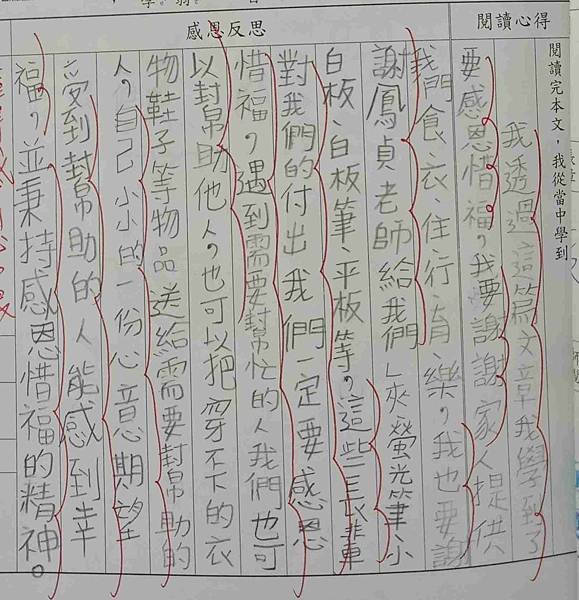 閱讀心得
感恩反思
閱讀完本文，我從當中學到
我透過這篇文章我學到了
要感恩惜福，我要謝謝家人提供
我們食、衣、住、行、育、樂，我也要謝
謝鳳貞老師給我們L夾、螢光筆、小
白板、白板筆、平板等，這些長輩
對我們的付出我們一定要感恩
惜福，遇到需要幫忙的人我們也可
以幫助他人，也可以把穿不下的衣
物鞋子等物品送給需要幫助的
人，自己小小的一份心意期望
受到幫助的人能感到幸
福，並秉持感恩惜福的精神。